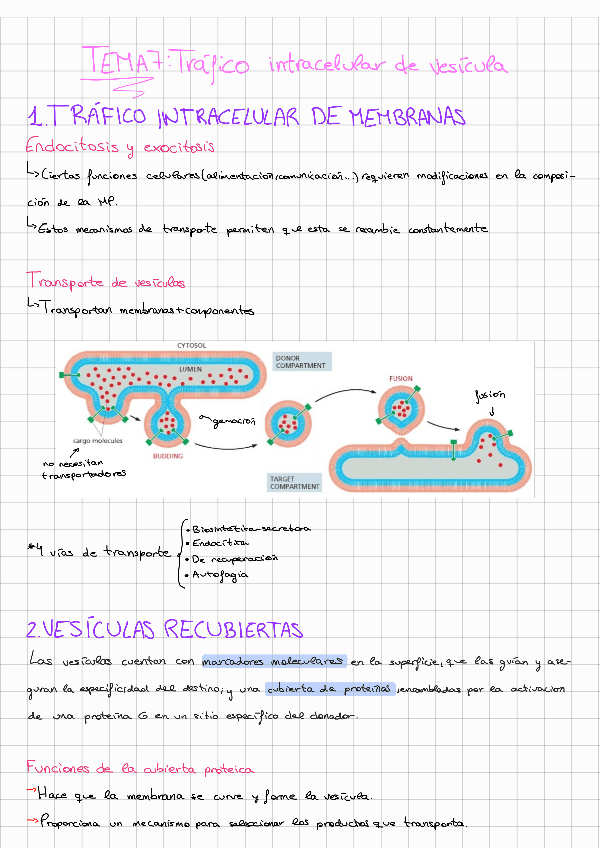 TEMA 7: Tráfico intracelular de vesícula
1. TRÁFICO INTRACELULAR DE MEMBRANAS
Endocitosis y exocitosis
↳ Ciertas funciones celulares (alimentación, comunicación...) requieren modificaciones en la composi-
ción de la MP.
↳ Estos mecanismos de transporte permiten que esta se recambie constantemente
Transporte de vesículas
↳ Transportan membranas + componentes
CYTOSOL
LUMEN
DONOR
COMPARTMENT
FUSION
fusión
gemación
cargo molecules
BUDDING
no necesitan
transportadores
TARGET
COMPARTMENT
*4 vías de transporte
• Biosintética-secretora
• Endocítica
• De recuperación
• Autofagia
2. VESÍCULAS RECUBIERTAS
Las vesículas cuentan con marcadores moleculares en la superficie, que las guían y ase-
guran la especificidad del destino; y una cubierta de proteínas, ensambladas por la activación
de una proteína G en un sitio específico del donador.
Funciones de la cubierta proteica
→ Hace que la membrana se curve y forme la vesícula.
→ Proporciona un mecanismo para seleccionar los productos que transporta.